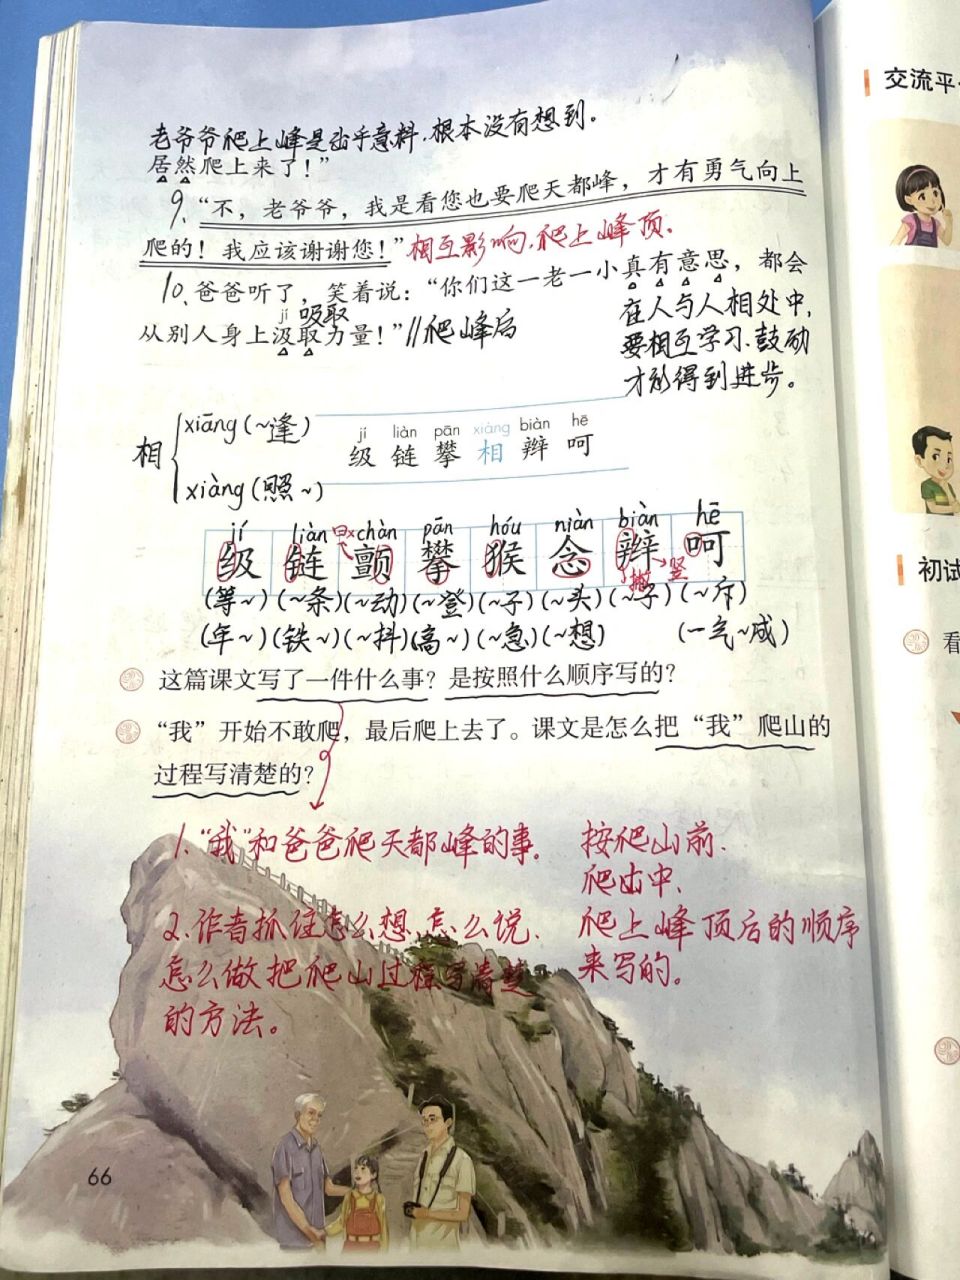 老爷爷爬上峰是出乎意料,根本没有想到。
居然爬上来了！”
9.“不，老爷爷，我是看您也要爬天都峰，才有勇气向上
爬的！我应该谢谢您！”相互影响,爬上峰顶.
10.爸爸听了，笑着说：“你们这一老一小真有意思，都会
jí 吸取
从别人身上汲取力量！”//爬峰后
在人与人相处中,
要相互学习.鼓励
才形得到进步。
相
xiāng(~逢)
xiàng(照~)
jí liàn pān xiàng biàn hē
级 链 攀 相 辫 呵
jí liàn 旦× chàn pān hóu niàn biàn hē
级 链 颤 攀 猴 念 辫 呵
撇 竖
(等~)(~条)(~动)(~登)(~子)(~头)(~子)(~斥)
(年~)(铁~)(~抖)(高~)(~急)(~想) (一气~成)
这篇课文写了一件什么事？是按照什么顺序写的？
“我”开始不敢爬，最后爬上去了。课文是怎么把“我”爬山的
过程写清楚的？
1.“我”和爸爸爬天都峰的事。
按爬山前.
爬山中、
爬上峰顶后的顺序
来写的。
2.作者抓住怎么想,怎么说.
怎么做把爬山过程写清楚
的方法。
66
交流平
初试
看